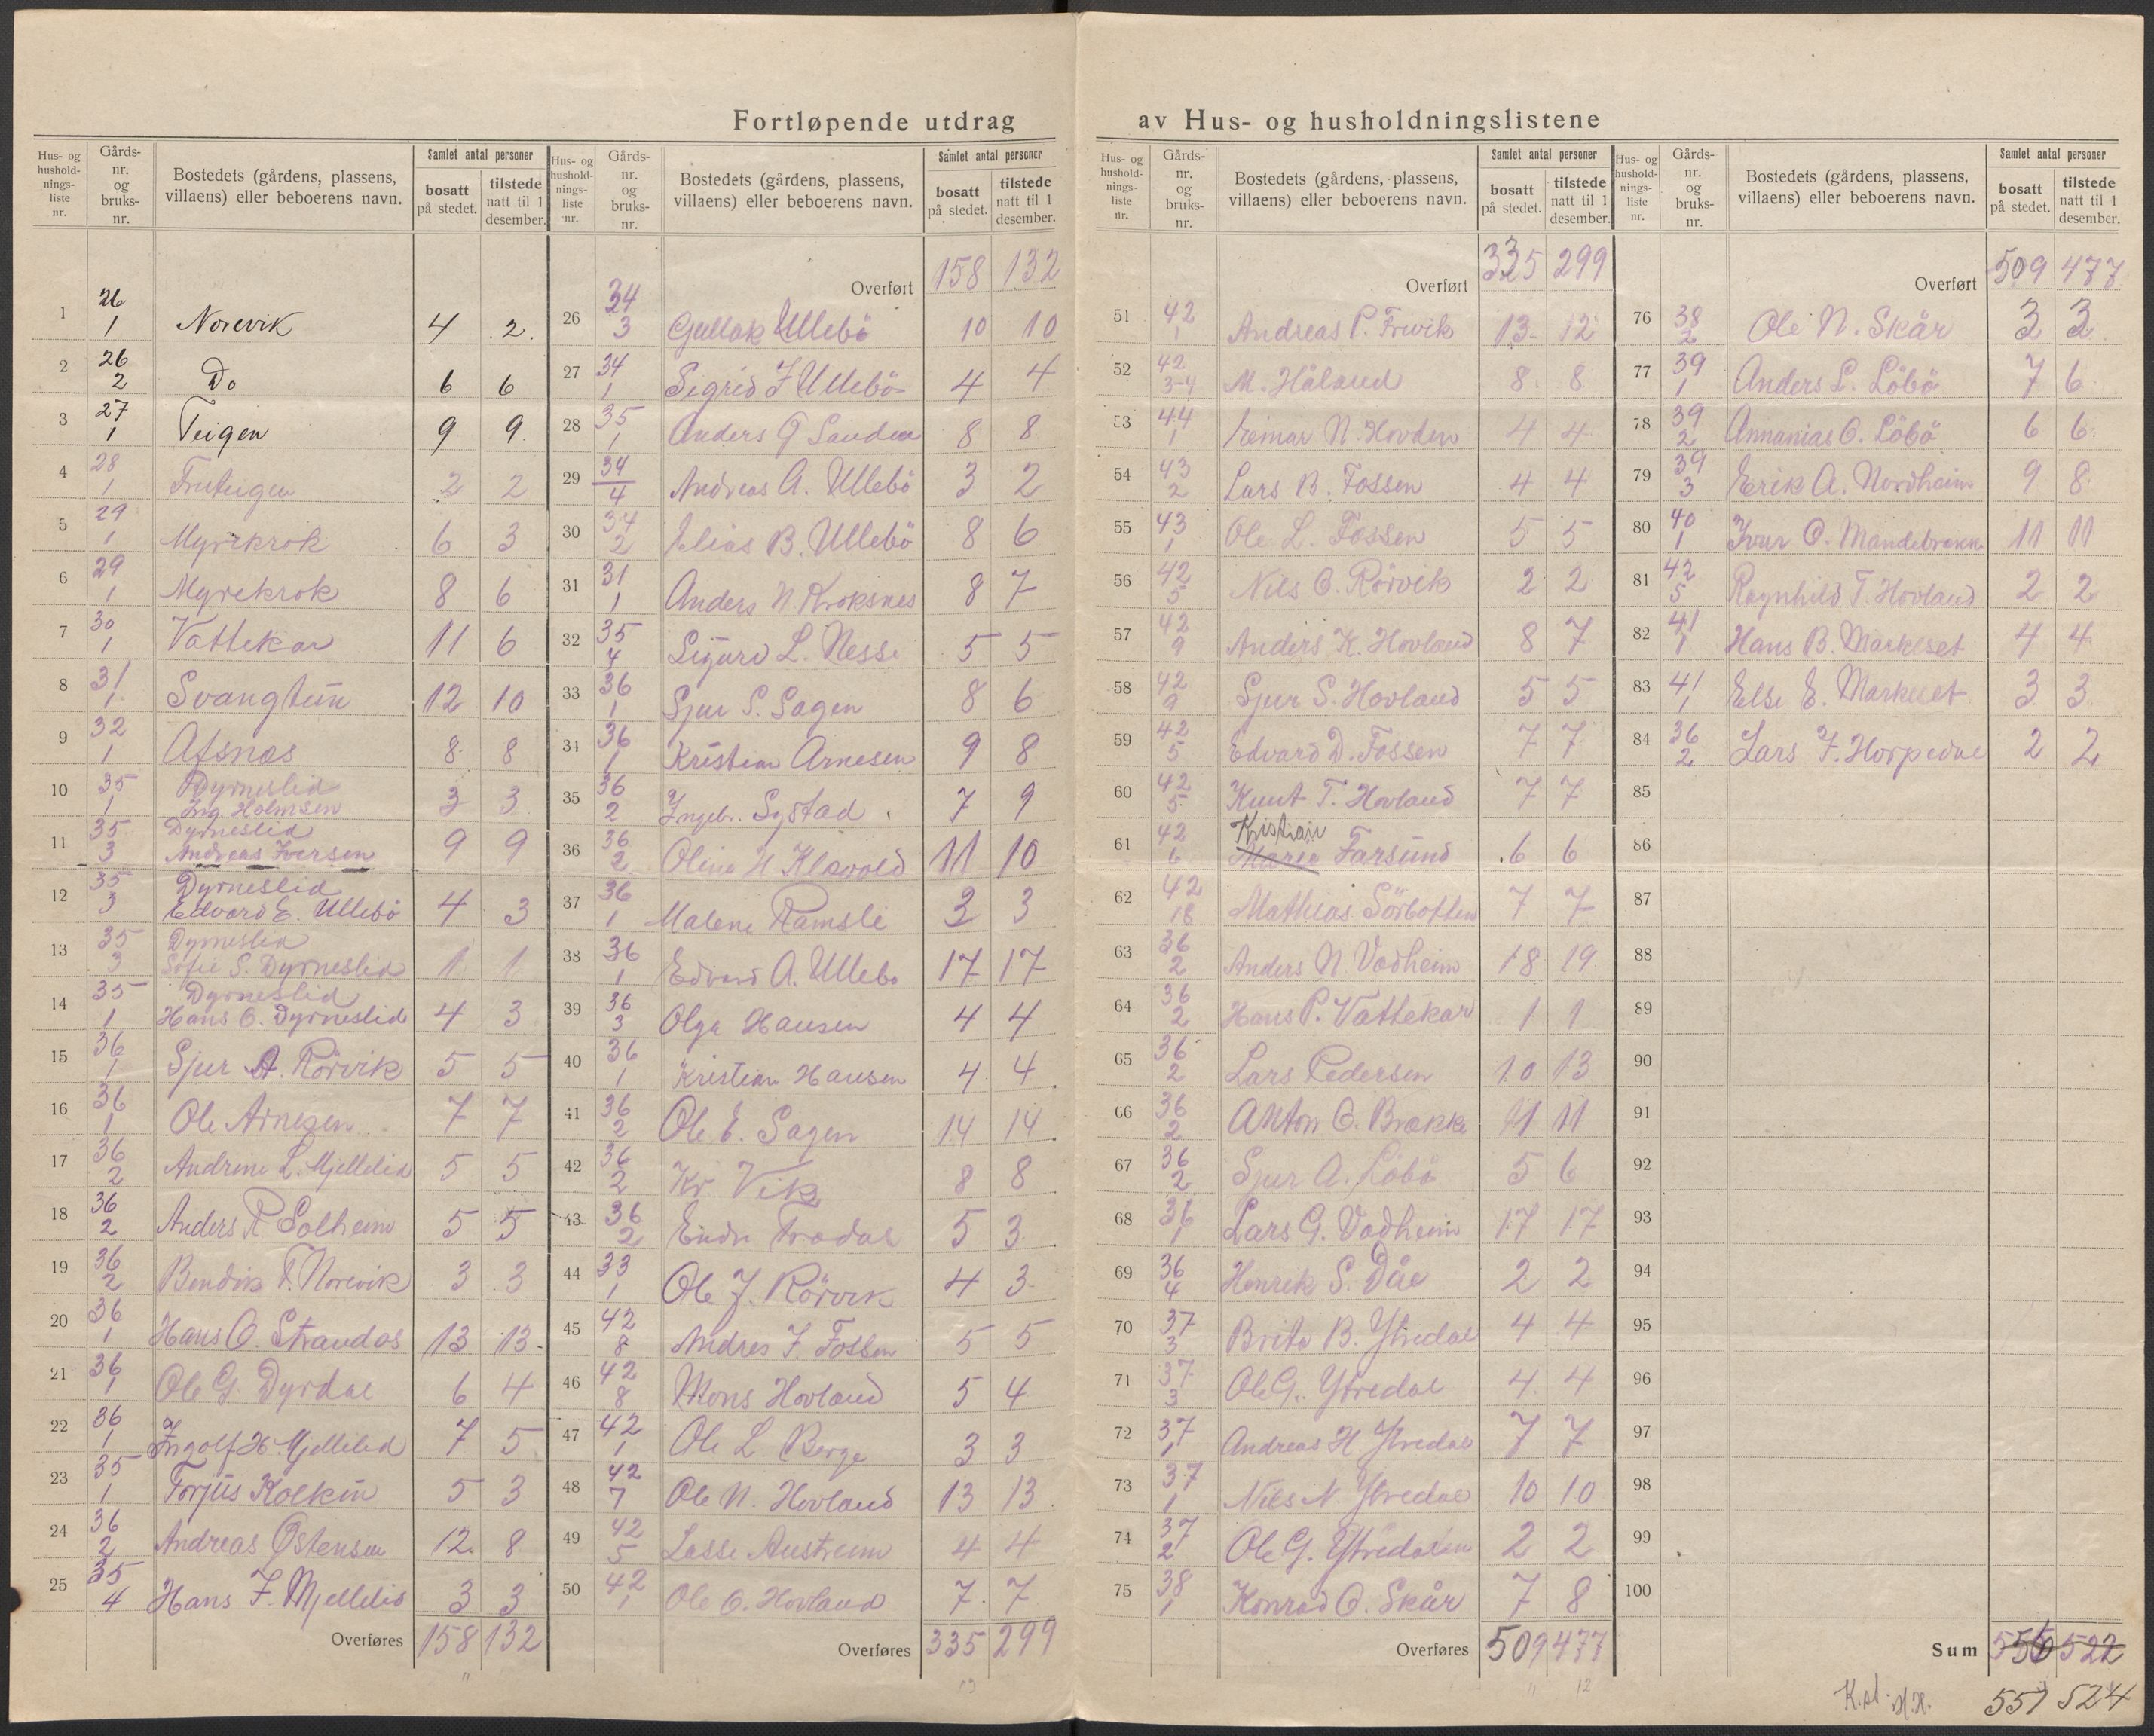 Fortløpende utdrag av Hus- og husholdningslistene
Hus- og husholdnings- liste nr. | Gårds- nr. og bruks- nr. | Bostedets (gårdens, plassens, villaens) eller beboerens navn. | Samlet antal personer | bosatt på stedet. | tilstede natt til 1 desember.
1 26 1 Norevik 4 2.
2 26 2 Do 6 6
3 27 1 Teigen 9 9
4 28 1 Fruteigen 2 2
5 29 1 Myrekrok 6 3
6 29 1 Myrekrok 8 6
7 30 1 Vattekar 11 6
8 31 1 Svangtun 12 10
9 32 1 Afsnes 8 8
10 35 1 Dyrneslid Ing. Holmsen 3 3
11 35 3 Dyrneslid Andreas Iversen 9 9
12 35 3 Dyrneslid Edvard E. Ullebö 4 3
13 35 3 Dyrneslid Sofie S. Dyrneslid 1 1
14 35 1 Dyrneslid Hans O. Dyrneslid 4 3
15 36 1 Sjur A. Rörvik 5 5
16 36 1 Ole Arnesen 7 7
17 36 2 Andrine L. Mjellelid 5 5
18 36 2 Anders R Solheim 5 5
19 36 2 Bendik T. Norevik 3 3
20 36 1 Hans O. Strandos 13 13
21 36 1 Ole G. Dyrdal 6 4
22 36 1 Ingolf H. Mjellelid 7 5
23 35 1 Torjus Kolkin 5 3
24 36 2 Andreas Østensen 12 8
25 35 4 Hans F. Mjellelid 3 3
Overføres 158 132
Hus- og husholdnings- liste nr. | Gårds- nr. og bruks- nr. | Bostedets (gårdens, plassens, villaens) eller beboerens navn. | Samlet antal personer | bosatt på stedet. | tilstede natt til 1 desember.
Overført 158 132
26 34 3 Gullak Ullebö 10 10
27 34 1 Sigrid J Ullebö 4 4
28 35 1 Anders G Sanden 8 8
29 34 4 Andreas A. Ullebö 3 2
30 34 2 Elias B. Ullebö 8 6
31 31 1 Anders N. Kroksnes 8 7
32 35 4 Sigurd L. Nesse 5 5
33 36 1 Sjur S. Sagen 8 6
34 36 1 Kristian Arnesen 9 8
35 36 2 Ingebr. Systad 7 9
36 36 2 Oline H Klævold 11 10
37 36 1 Malene Ramsli 3 3
38 36 1 Edvard A. Ullebö 17 17
39 36 3 Olga Hansen 4 4
40 36 1 Kristian Hansen 4 4
41 36 2 Ole E. Sagen 14 14
42 36 2 Kr Vik 8 8
43 36 2 Endre Tradal 5 3
44 33 1 Ole J. Rörvik 4 3
45 42 8 Andres J. Fossen 5 5
46 42 8 Mons Hovland 5 4
47 42 1 Ole L Berge 3 3
48 42 7 Ole N. Hovland 13 13
49 42 5 Lasse Austreim 4 4
50 42 1 Ole O. Hovland 7 7
Overføres 335 299
Hus- og husholdnings- liste nr. | Gårds- nr. og bruks- nr. | Bostedets (gårdens, plassens, villaens) eller beboerens navn. | Samlet antal personer | bosatt på stedet. | tilstede natt til 1 desember.
Overført 335 299
51 42 1 Andreas P. Frevik 13 12
52 42 3-4 M. Håland 8 8
53 44 1 Heimar N. Hovden 4 4
54 43 2 Lars B. Fossen 4 4
55 43 1 Ole L. Fossen 5 5
56 42 5 Nils O. Rörvik 2 2
57 42 9 Anders K. Hovland 8 7
58 42 9 Sjur S. Hovland 5 5
59 42 5 Edvard D. Fossen 7 7
60 42 5 Knut T. Hovland 7 7
61 42 6 Kristian Farsund 6 6
62 42 18 Mathias Sörbotten 7 7
63 36 2 Anders N. Vadheim 18 19
64 36 2 Hans P. Vattekar 1 1
65 36 2 Lars Pedersen 10 13
66 36 2 Anton O. Brække 11 11
67 36 2 Sjur A. Löbö 5 6
68 36 1 Lars G. Vadheim 17 17
69 36 4 Henrik S. Dåe 2 2
70 37 3 Brita B. Ytredal 4 4
71 37 3 Ole G. Ytredal 4 4
72 37 1 Andreas H Ytredal 7 7
73 37 1 Nils N Ytredal 10 10
74 37 2 Ole G. Ytredalen 2 2
75 38 1 Konrad O. Skår 7 8
Overføres 509 477
Hus- og husholdnings- liste nr. | Gårds- nr. og bruks- nr. | Bostedets (gårdens, plassens, villaens) eller beboerens navn. | Samlet antal personer | bosatt på stedet. | tilstede natt til 1 desember.
Overført 509 477
76 38 2 Ole N. Skår 3 3
77 39 1 Anders L. Löbö 7 6
78 39 2 Annanias O. Löbö 6 6
79 39 3 Erik A. Nordheim 9 8
80 40 1 Ivar O. Mandebrekke 11 11
81 42 5 Ragnhild T. Hovland 2 2
82 41 1 Hans B. Markeset 4 4
83 41 1 Else E. Markeset 3 3
84 36 2 Lars F. Horpedal 2 2
85
86
87
88
89
90
91
92
93
94
95
96
97
98
99
100
Sum 550 522
K.st. H.H. 557 524